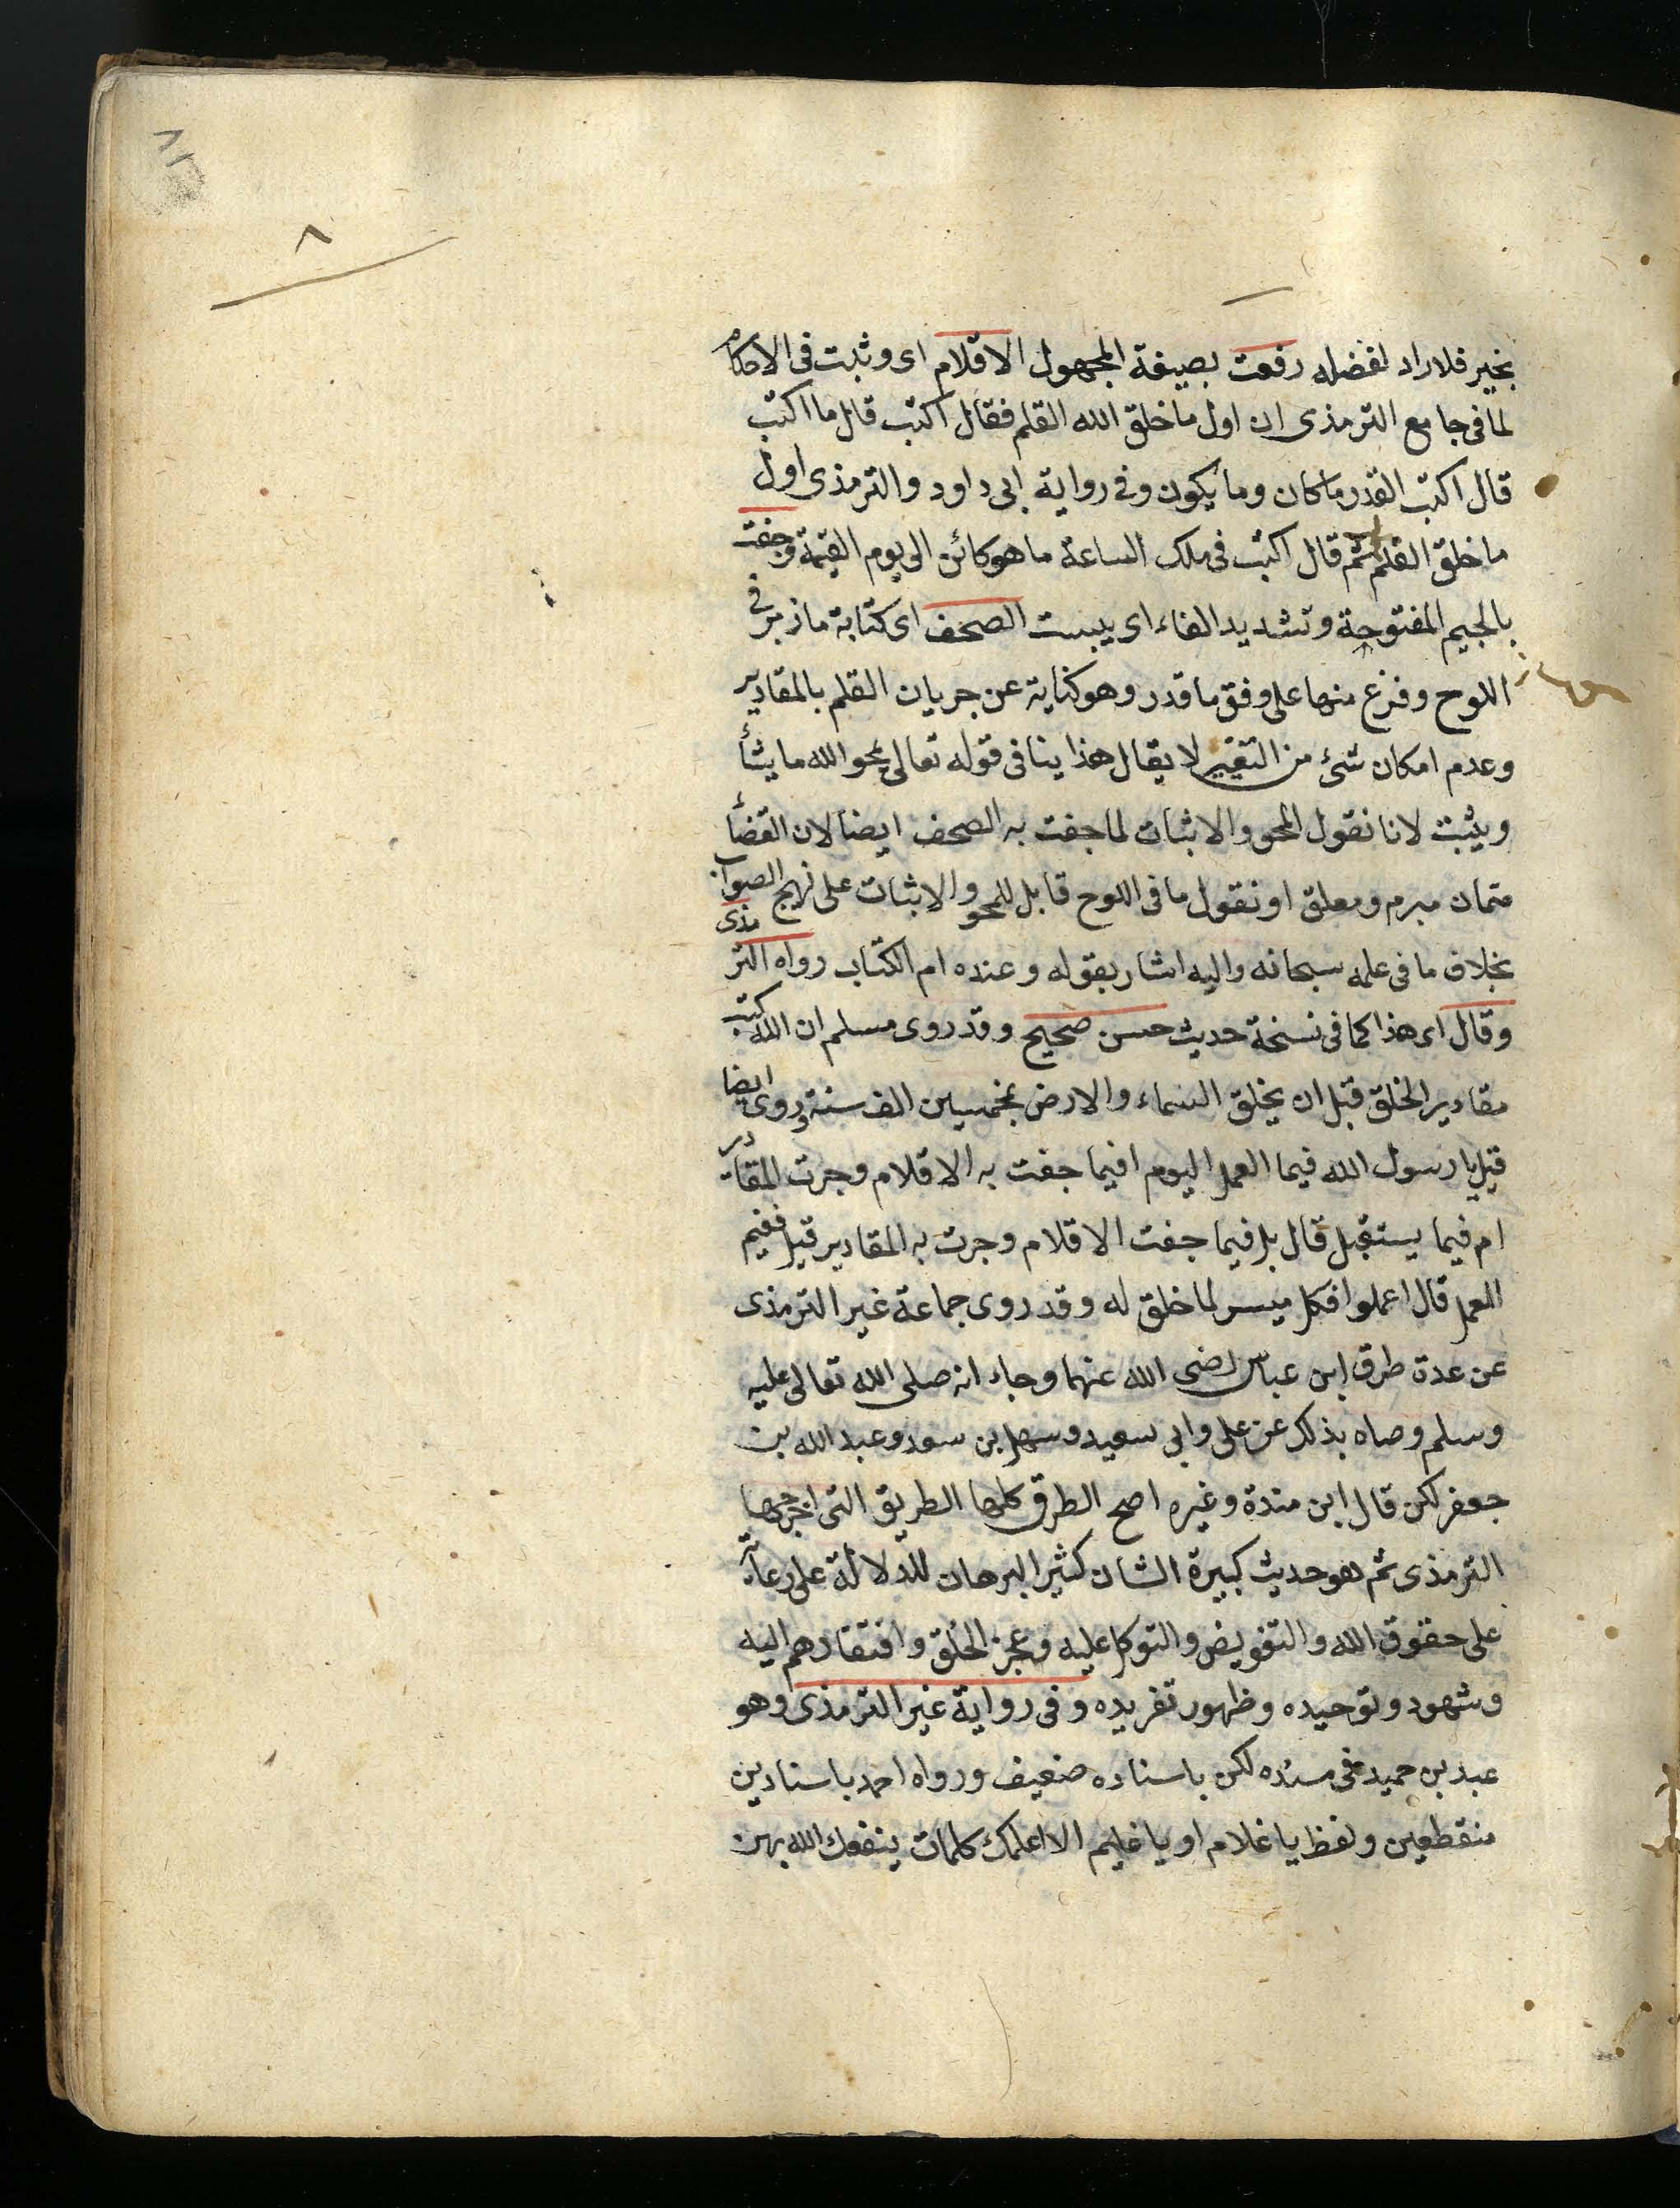 ٨١
٨
بخير فلا راد لفضله رفعت بصيغة المجهول الاقلام اى وثبت فى الاحكام
لما فى جامع الترمذى ان اول ما خلق الله القلم فقال اكتب قال ما اكتب
قال اكتب القدر ما كان وما يكون وفى رواية ابى داود والترمذى اول
ما خلق القلم ثم قال اكتب فى ملك الساعة ما هو كائن الى يوم القيمة وجفت
بالجيم المفتوحة وتشديد الفاء اى يبست الصحف اى كتابة ما زبر فى
اللوح وفرغ منها على وفق ما قدر وهو كناية عن جريان القلم بالمقادير
وعدم امكان شئ من التغيير لا يقال هذا ينافى قوله تعالى يمحو الله ما يشأ
ويثبت لانا نقول المحو والاثبات لما جفت به الصحف ايضا لان القضأ
قتمان مبرم ومعلق او نقول ما فى اللوح قابل للمحو والاثبات على نهج الصواب
بخلاف ما فى علمه سبحانه واليه اشار بقوله وعنده ام الكتاب رواه الترمذى
وقال اى هذا كما فى نسخة حديث حسن صحيح وقد روى مسلم ان الله كتب
مقادير الخلق قبل ان يخلق السماء والارض بخمسين الف سنة وروى ايضا
قيل يا رسول الله فيما العمل اليوم افيما جفت به الاقلام وجرت المقادر
ام فيما يستقبل قال بل فيما جفت الاقلام وجرت به المقادير قيل ففيم
العمل قال اعملوا فكل ميسر لما خلق له وقد روى جماعة غير الترمذى
عن عدة طرق ابن عباس رضى الله عنهما وجاء انه صلى الله تعالى عليه
وسلم وصاه بذلك عن على وابى سعيد وسهل بن سعد وعبد الله بن
جعفر لكن قال ابن مندة وغيره اصح الطرق كلها الطريق التى اخرجها
الترمذى ثم هو حديث كبيرة الشان كثير البرهان للدلالة على رعآية
على حقوق الله والتفويض والتوكل عليه وعجز الخلق وافتقارهم اليه
وشهود وتوحيده وظهور تفريده وفى رواية غير الترمذى وهو
عبد بن حميد فى مسنده لكن باسناده ضعيف ورواه احمد باسنادين
منقطعين ولفظ يا غلام او يا غليم الا اعلمك كلمات ينفعك الله بهن